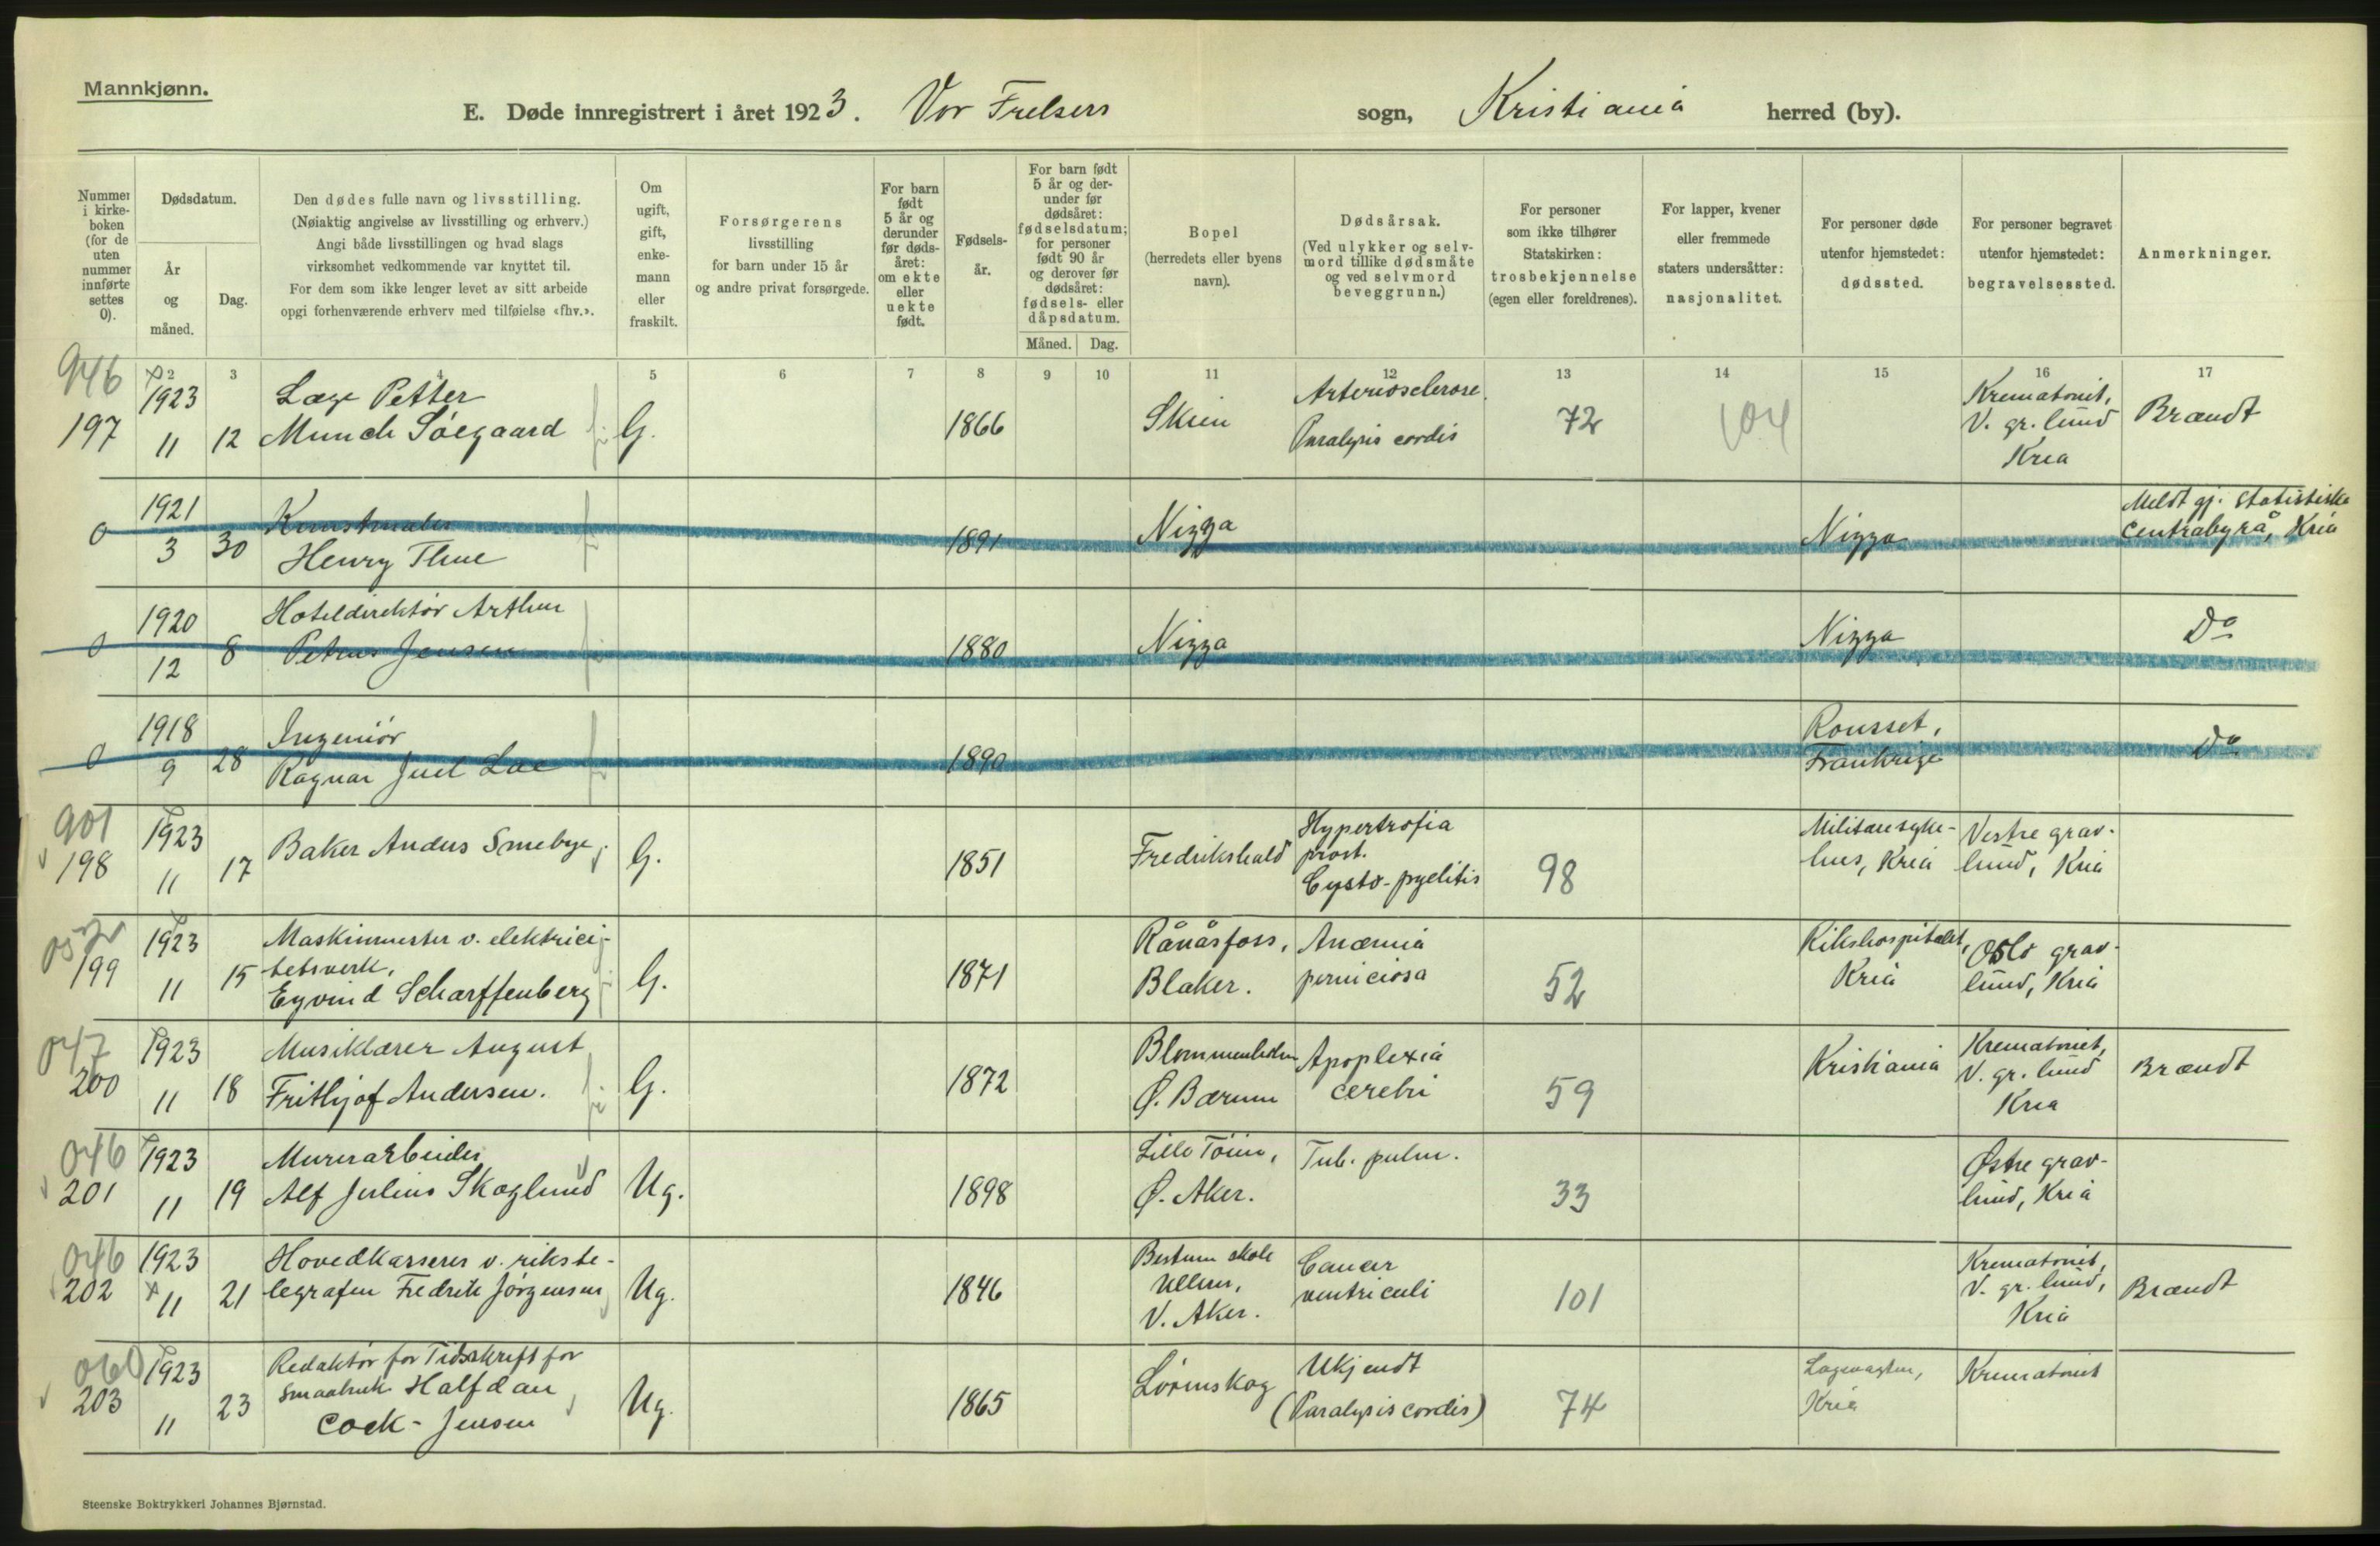 Mannkjønn.
E. Døde innregistrert i året 1923. Vor Frelsers sogn, Kristiania herred (by).
Nummer i kirkeboken (for de uten nummer innførte settes 0).
Dødsdatum.
År og måned.
Dag.
Den dødes fulle navn og livsstilling.
(Nøiaktig angivelse av livsstilling og erhverv.)
Angi både livsstillingen og hvad slags
virksomhet vedkommende var knyttet til.
For dem som ikke lenger levet av sitt arbeide
opgi forhenværende erhverv med tilføielse «fhv.».
Om ugift, gift, enkemann eller fraskilt.
Forsørgerens
livsstilling
for barn under 15 år
og andre privat forsørgede.
For barn født 5 år og derunder før dødsåret: om ekte eller uekte født.
Fødselsår.
For barn født 5 år og derunder før dødsåret: fødselsdatum; for personer født 90 år og derover før dødsåret: fødsels- eller dåpsdatum.
Måned. Dag.
Bopel
(herredets eller byens
navn).
Dødsårsak.
(Ved ulykker og selvmord tillike dødsmåte og ved selvmord beveggrunn.)
For personer
som ikke tilhører
Statskirken:
trosbekjennelse
(egen eller foreldrenes).
For lapper, kvener
eller fremmede
staters undersåtter:
nasjonalitet.
For personer døde
utenfor hjemstedet:
dødssted.
For personer begravet
utenfor hjemstedet:
begravelsessted.
Anmerkninger.
2 3 4 5 6 7 8 9 10 11 12 13 14 15 16 17
946
197 1923 11 12 Læge Petter
Munch Söegaard G. 1866 Skien Arteriosclerose.
Paralysis cordis 72 104 Krematoriet,
V. gr. lund
Kria Brandt
0 1921 3 30 Kunstmaler
Henry Thue 1891 Nizza Nizza Meldt gj. Statistiske
Centrabyrå, Kria
0 1920 12 8 Hoteldirektör Arthur
Petrus Jensen 1880 Nizza Nizza Do
0 1918 9 28 Ingeniör
Ragnar Juel Lae 1890 Rousset,
Frankrige Do
901
198 1923 11 17 Baker Anders Smebye G. 1851 Fredrikshald Hypertrofia
prost.
Cysto-pyelitis 98 Militæresyke-
hus, Kria Vestre grav-
lund, Kria
199 1923 11 15 Maskinmester v. elektrici-
tetsverk,
Eyvind Scharffenberg G. 1871 Rånåsfoss,
Blaker. Anæmia
perniciosa 52 Rikshospitalet,
Kria Oslo grav-
lund, Kria
047
200 1923 11 18 Musiklærer August
Frithjof Andersen. G. 1872 Blommenholm
Ø. Bærum Apoplexia
cerebri 59 Kristiania Krematoriet,
V. gr. lund
Kria Brandt
046
201 1923 11 19 Murerarbeider
Alf Julius Skoglund Ug. 1898 Lille Töien,
Ø. Aker. Tub. pulm. 33 Østre grav-
lund, Kria
046
202 1923 11 21 Hovedkasserer v. rikste-
legrafen Fredrik Jörgensen Ug. 1846 Bestum skole
Ullern,
V. Aker. Cancer
ventriculi 101 Krematoriet,
V. gr. lund,
Kria Brandt
060
203 1923 11 23 Redaktör for Tidsskrift for
Smaabruk Halfdan
Cock-Jensen Ug. 1865 Lörenskog Ukjendt
(Paralysis cordis) 74 Lægevagten,
Kria Krematoriet
Steenske Boktrykkeri Johannes Bjørnstad.